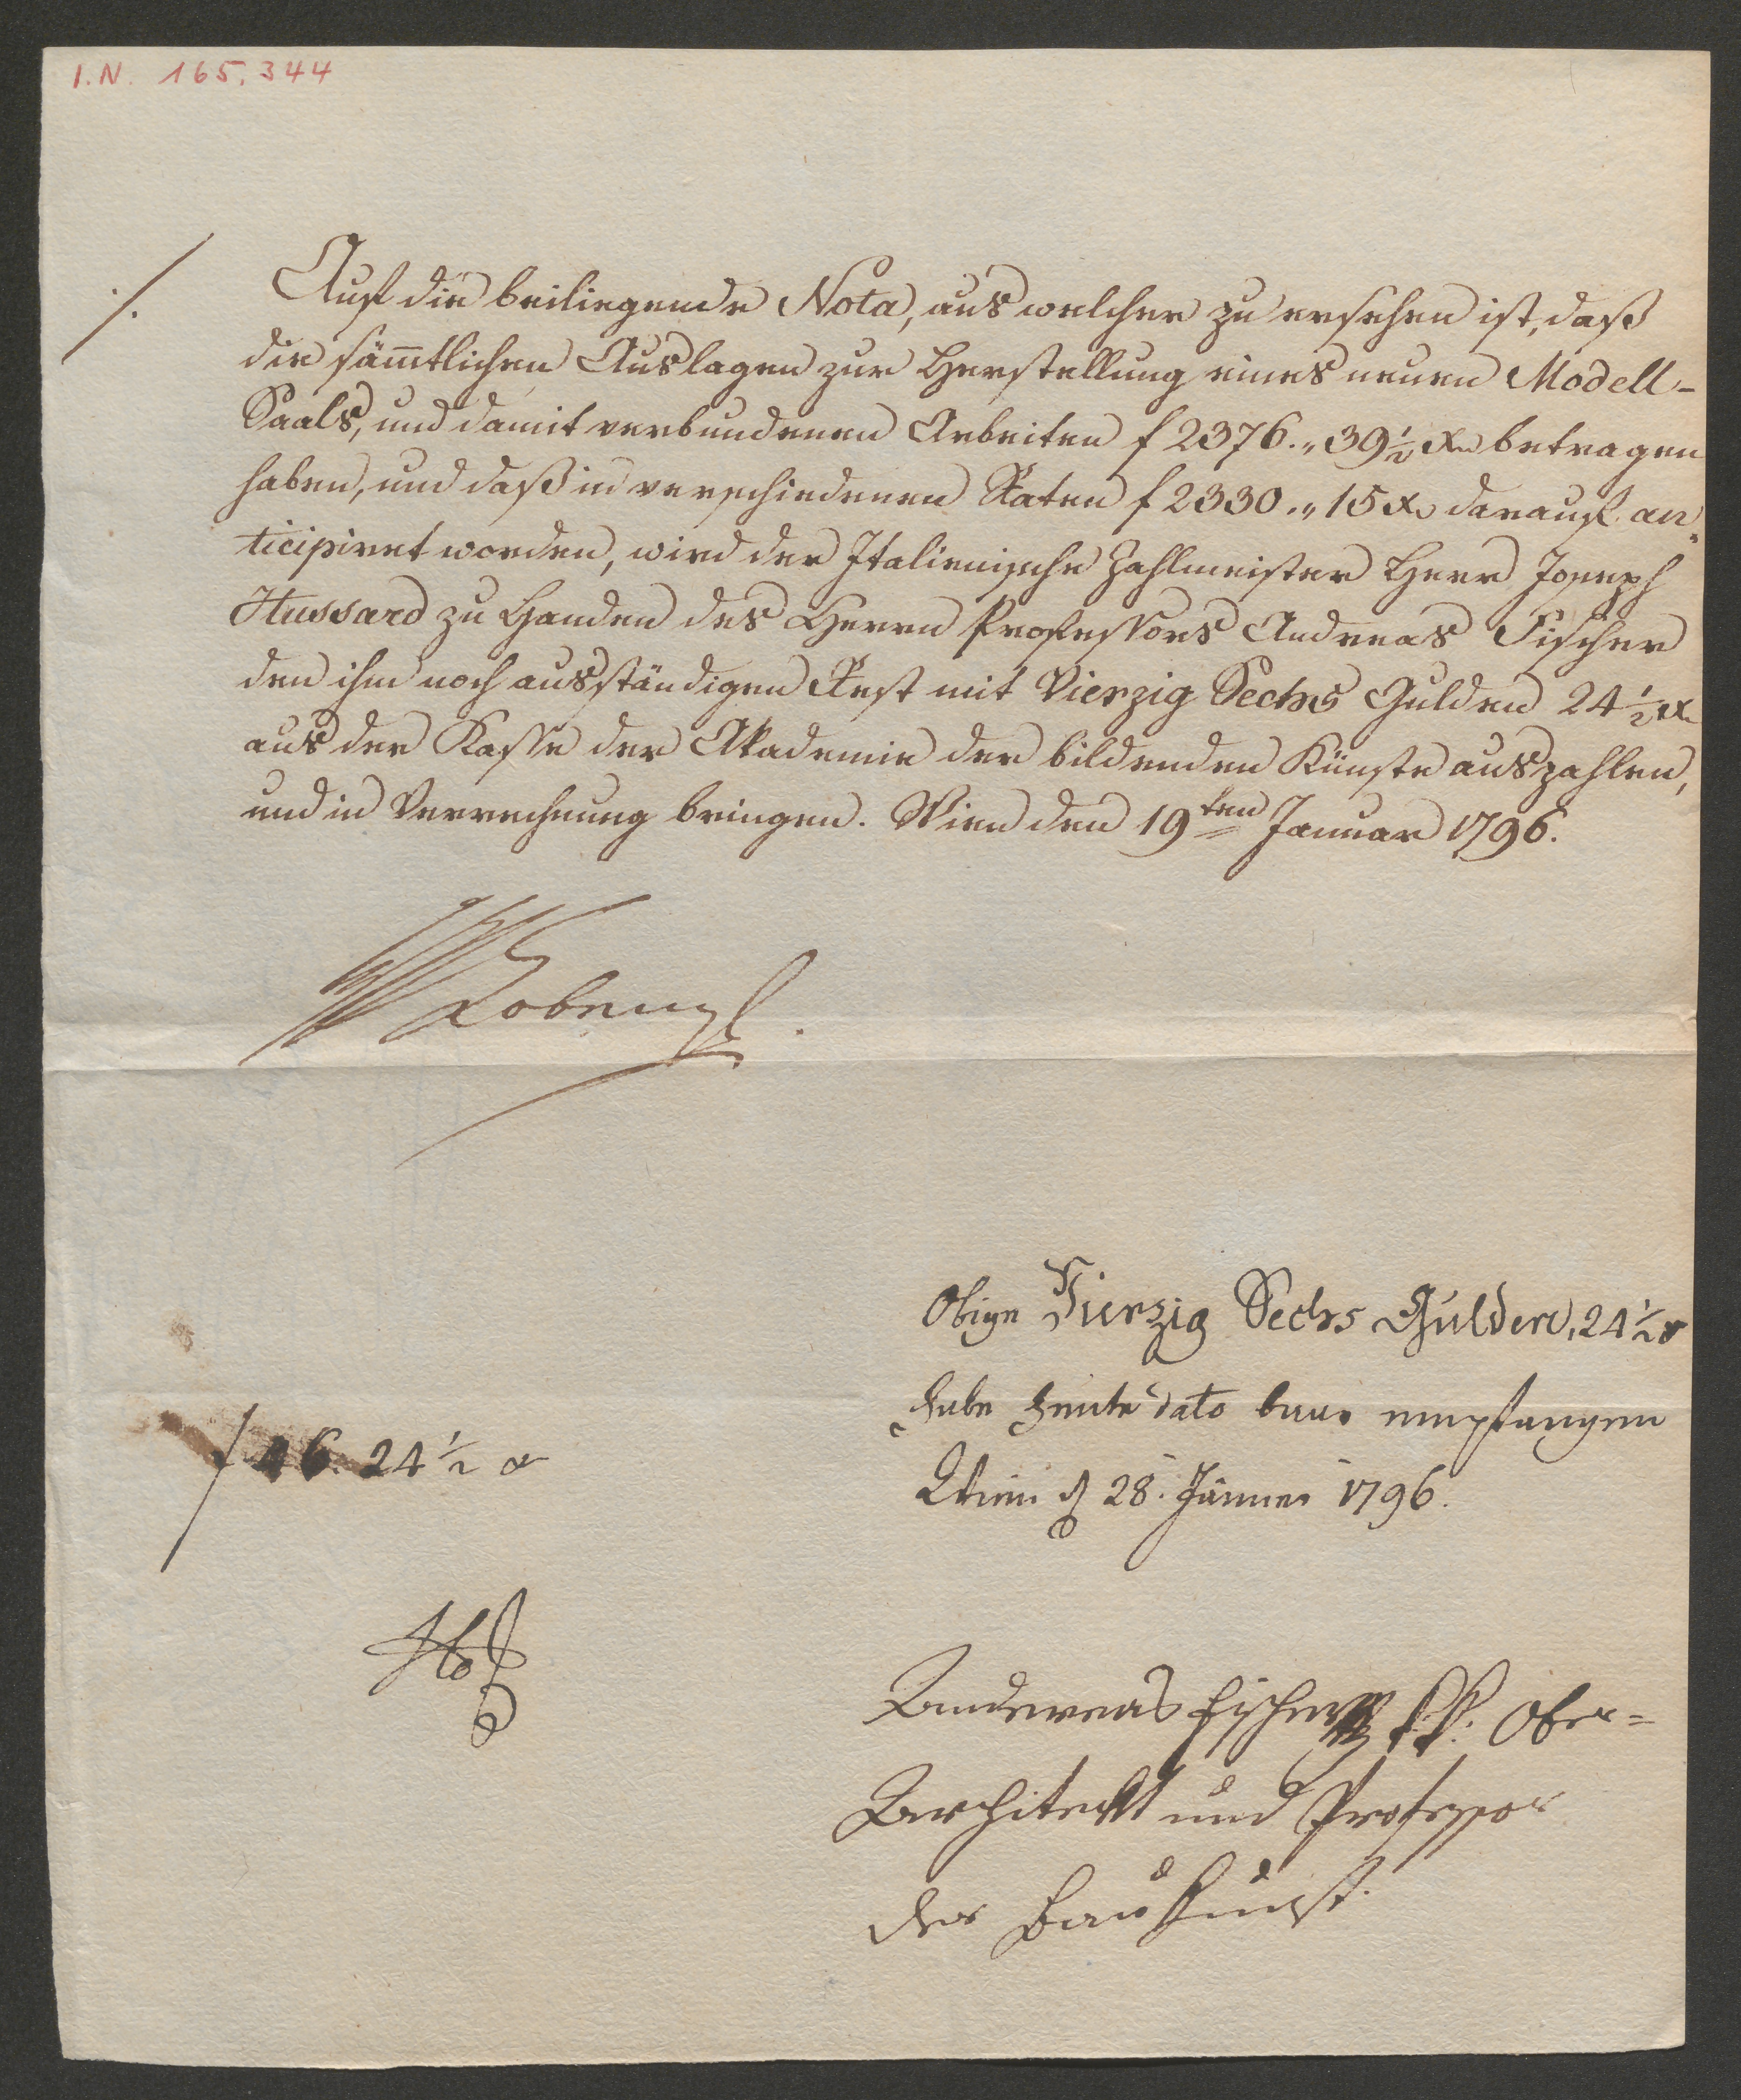 I.N. 165.344
./.
Auf die beiliegende Nota, aus welcher zu ersehen ist, daß
die sämtlichen Auslagen zur Herstellung eines neuen Modell-
Saals, und damit verbundenen Arbeiten f 2376.„ 39½ xr betragen
haben, und daß in verschiedenen Raten f 2330.„ 15 xr darauf an„
ticipiret worden, wird der Italienische Zahlmeister Herr Joseph
Hussard zu Handen des Herrn Professors Andreas Fischer
den ihm noch ausständigen Rest mit Vierzig Sechs Gulden 24½ xr
aus der Kasse der Akademie der bildenden Künste auszahlen,
und in Verrechnung bringen. Wien den 19ten Januar 1796.
Cobenzl.
Obige Vierzig Sechs Gulden, 24½ xr
habe heute dato baar empfangen
Wien d 28. Jänner 1796.
f 46. 24½ xr
Andereas Fischer k.k. Ober=
Architeckt und Professor
der Baukunst.